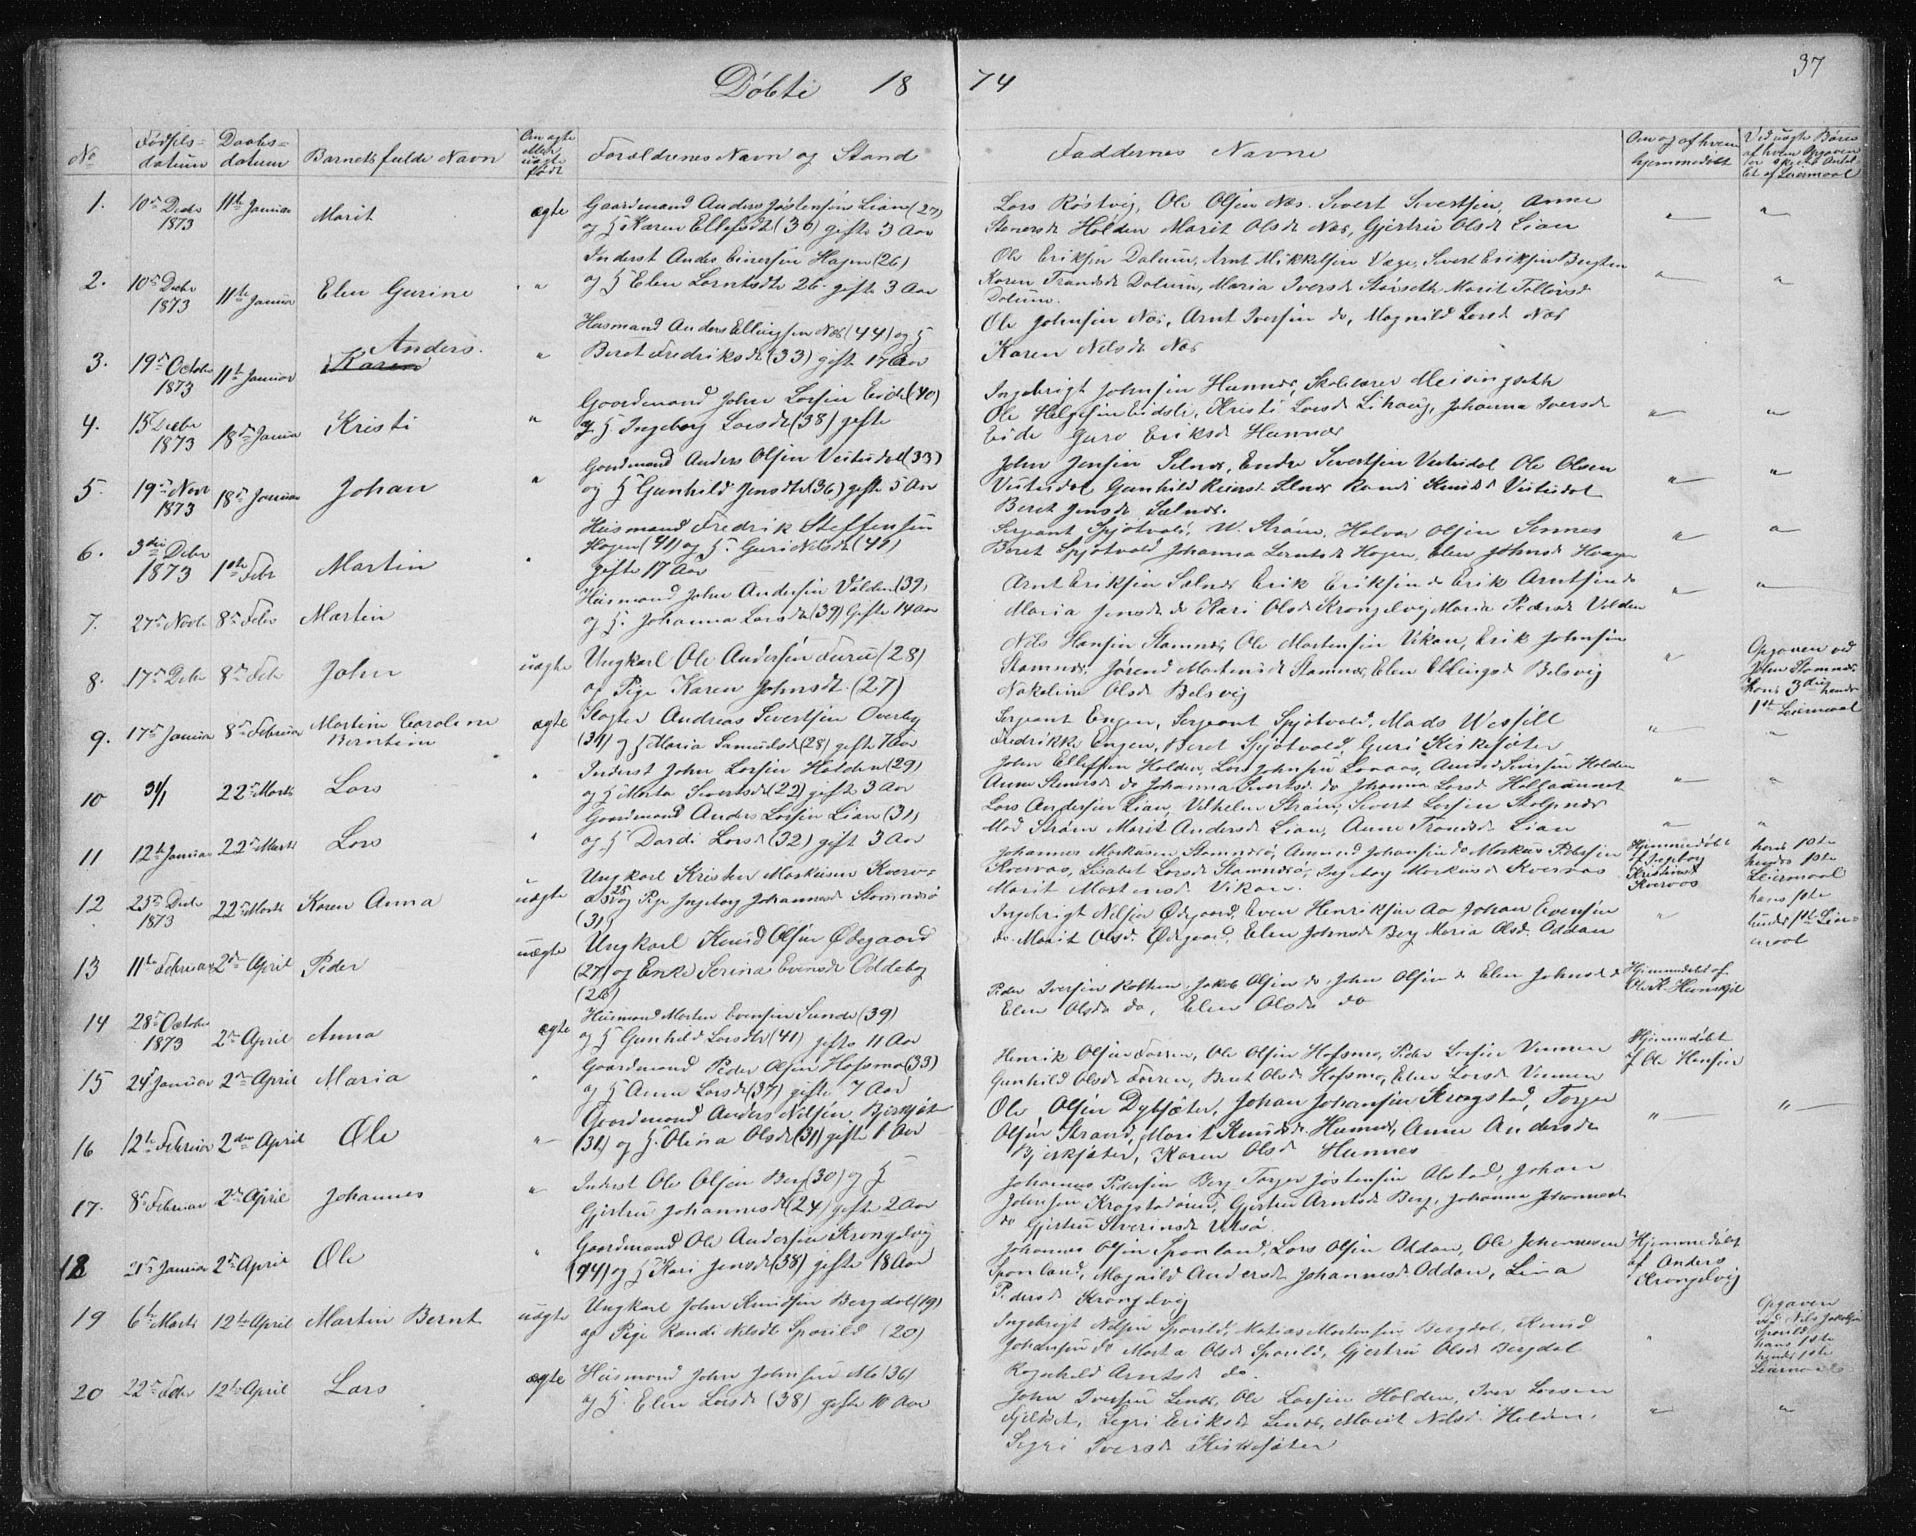 Döbte 18 74
37
No
Födsels=
datum
Daabs=
datum
Barnets fulde Navn
Om ægte
eller
uægte
födt
Forældrenes Navn og Stand
Faddernes Navne
Om og af hvem
hjemmedöbt
Ved uægte Börn
af hvem Opgaven
1. 10de Decbr 1873 11te Januar Marit ægte
Gaardmand Anders Jostensen Lian (27)
og H Karen Ellefsdt (36) gifte 3 Aar
Lars Rostvig, Ole Olsen Næs. Sivert Sivertsen, Anne
Stenersdt Holden Marit Olsdt Næs, Gjertru Olsdt Lian
2. 10de Decbr 1873 11te Januar Elen Gurine "
Inderst Anders Einersen Hagen (26)
og H Elen Larntsdtr 26. gifte 3 Aar
Ole Eriksen Dalum, Arnt Mikkelsen Vage, Sivert Eriksen
Karen Trondsdt Dalum, Maria Iversdt Störseth Marit
Dalum.
3. 19de Octobr 1873 11te Januar Anders. Karen "
Husmand Anders Ellingsen Næs (44) og H
Beret Fredriksdt (33) gift 17 Aar
Ole Johnsen Næs, Arnt Iversen do, Magnild Larsd Næs
Karen Nilsdt Næs
4. 15 Decbr 1873 18de Januar Kristi "
Gaardmand John Larsen Eide (40)
og H Ingeborg Larsdt (38) gifte
Ingebrigt Johnsen Hamnes, Skolelærer Meisingseth
Ole Helgesen Eidsli, Kristi Larsdt Lihaug, Johanna Iversdt
Eide Guro Eriksdt Hamnes
5. 19de Novr 1873 18de Januar Johan "
Gardmand Anders Olsen Vestudal (33)
og H Gunhild Jensdtr (36) gifte 5 Aar
John Jensen Selnes, Endre Sivertsen Vestudal Ole Olsen
Vestudal Gunhild Selnes Randi Knudsdt Vestudal
Beret Jensdt Sælnes.
6. 3die Debr 1873 1ste Febr Martin "
Husmand Fredrik Steffensen
Hagen (41) og H. Guri Nilsdt (41)
gifte 17 Aar
Sergeant Spjötvold, W. Ström, Halvor Olsen Sennes
Beret Spjötvold Johanna Larntsdt Hagen, Elen Johnsdt Haagen
7. 27de Novb 8de Febr Martin
Husmand John Andersen Volden (39)
og H. Johanna Larsdt (39) Gifte 14 Aar
Arnt Eriksen Sælnes Erik Eriksen do Erik Arntsen do
Maria Jensdt do Kari Olsdt Krongelvig Maria Pedersdt Volden
8. 17de Debr 8de Febr John uægte
Ungkarl Ole Andersen Furu (28)
og Pige Karen Johnsdt. (27)
Nils Hansen Stamnes, Ole Mortensen Vikan, Erik Johnsen
Stamnes, Jörend Mortensdt Stamnes, Elen Ellingsdt Belsvig
Nakeline Olsdt Belsvig
Opgaven ved
John Stamnes.
hans 3die hendes
1ste Leiermaal
9. 17de Januar 8de Februar Martine Caroline
Berntine ægte
Slagter Andreas Sivertsen Överby
(34) og H Maria Samuelsdt (28) gifte 7 Aar
Sergeant Engen, Sergeant Spjötvold, Mads Wesfill
Fredrikke Engen, Beret Spjötvold, Guri Kiskesæter
10 31/1 22de Marts Lars "
Inderst John Larsen Holden (29)
og H Marta Sivertsdt (22) gift 3 Aar
John Ellefsen Holden, Lars Johnsen, Anders Iversen Holden
Anne Stenersdt do Johanna Sivertsdt do Johanna Larsdt
11 12te Januar 22de Marts Lars "
Gaardmand Anders Larsen Lian (31)
og H Dardi Larsdt (32) gift 3 Aar
Lars Andersen Lian, Vilhelm Ström, Sivert Larsen Stolpnes
Mad Ström Marit Andersdt Lian, Anne Trondsdt Lian
12 25de Decbr 1873 22de Marts Karen Anna uægte
Ungkarl Kristen Markusen Kverv=
aas 25 og Pige Ingeborg Johannesdt Stamnesö
(31)
Johannes Markusen Stamnesö, Amund Johansen do Markus Petersen
Kvervaas, Lisabet Larsdt Stamnesö, Ingeborg Markusdt Kvervaas
Marit Mortensdt Vikan.
Hjemmedöbt
af Ingeborg
Kristensdt
Kvervaas
hans 1ste
hendes 1ste
Leiermaal
13 11te Februar 2den April Peder uægte
Ungkarl Knud Olsen Ödegaard
(27) og Enke Serina Evensdt Oddebog
(26)
Ingebrigt Nilsen Ödegaard, Even Henriksen Aa Johan Evensen
do. Marit Olsdt. Ödegaard, Elen Johnsdt Berg Maria Olsdt. Oddan
hans 1ste
hendes 1ste Lei=
ermaal
14 28de Octobr 1873 2den April Anna ægte
Husmand Morten Evensen Sunde (39)
og H Gunhild Larsdtr (41) gifte 11 Aar
Peder Iversen Rothem, Jakob Olsen do, John Olsen do Elen Johnsdt do
Elen Olsdt do, Elen Olsdt do
Hjemmedöbt af
Ole K. Hevnskjel
15 24de Januar 2den April Maria "
Gaardmand Peder Olsen Hofsmo (33)
og H Anne Larsdt (37) gifte 7 Aar
Henrik Olsen Forren, Ole Olsen Hofsmo, Peder Larsen Vennen
Gunhild Olsdt Forren, Beret Olsdt Hofsmo, Elen Larsdt Vennen
Hjemmedöbt
af Ole Hansen
16 12te Februar 2den April Ole "
Gaardmand Anders Nilsen Bjerksæter
(31) og H. Olina Olsdt (31) gifte 1 Aar
Ole Olsen Dybsæter, Johan Johansen Krogstad, Torger
Olsen Strand, Marit Knudsdt Hamnes, Anne Andersdt
Bjerksæter, Karen Olsdt Hamnes
17. 8de Februar 2den April Johannes "
Inderst Ole Olsen Berg (30) og H
Gjertru Johannesdt (24) gifte 2 Aar
Johannes Pedersen Berg Torger Jostensen Olstad, Johan
Johnsen Krogstadören, Gjertru Arntsdt Berg, Johanna Johannesdt
do Gjertru Severinsdt Ulsö
18 21de Januar 2den April Ole "
Gaardmand Ole Andersen Krongelvig
(44) og H Kari Jensdt (38) gifte 18 Aar
Johannes Olsen Sponland, Lars Olsen Oddan, Ole Johannesen
Sponland, Magnild Andersdt Johannesdt Oddan, Lina
Pedersdt Krongelvig
Hjemmedöbt
af Anders
Krongelvig
19 6te Marts 12te April Martin Bernt uægte
Ungkarl John Knudsen Bergdal (19)
og Pige Randi Nilsdt Sporild (20)
Ingebrigt Nilsen Sporild, Matias Mortensen Bergdal, Knud
Johansen do Marta Olsdt Sporild, Gjertru Olsdt Bergdal
Ragnhild Arntsdt do.
Opgaven
ved Nils Jakobsen
Sporild
hans 1ste
hendes 1ste
Leiermaal
20 22de Febr 12te April Lars ægte
Husmand John Johnsen Mo (36)
og H. Elen Larsdt (38) gifte 10 Aar
John Iversen Lenes, Ole Larsen Holden, Iver Larsen
Fjeldset, Segri Eriksdt Lenes, Marit Nilsdt Holden,
Segri Iversdt Kiskesæter